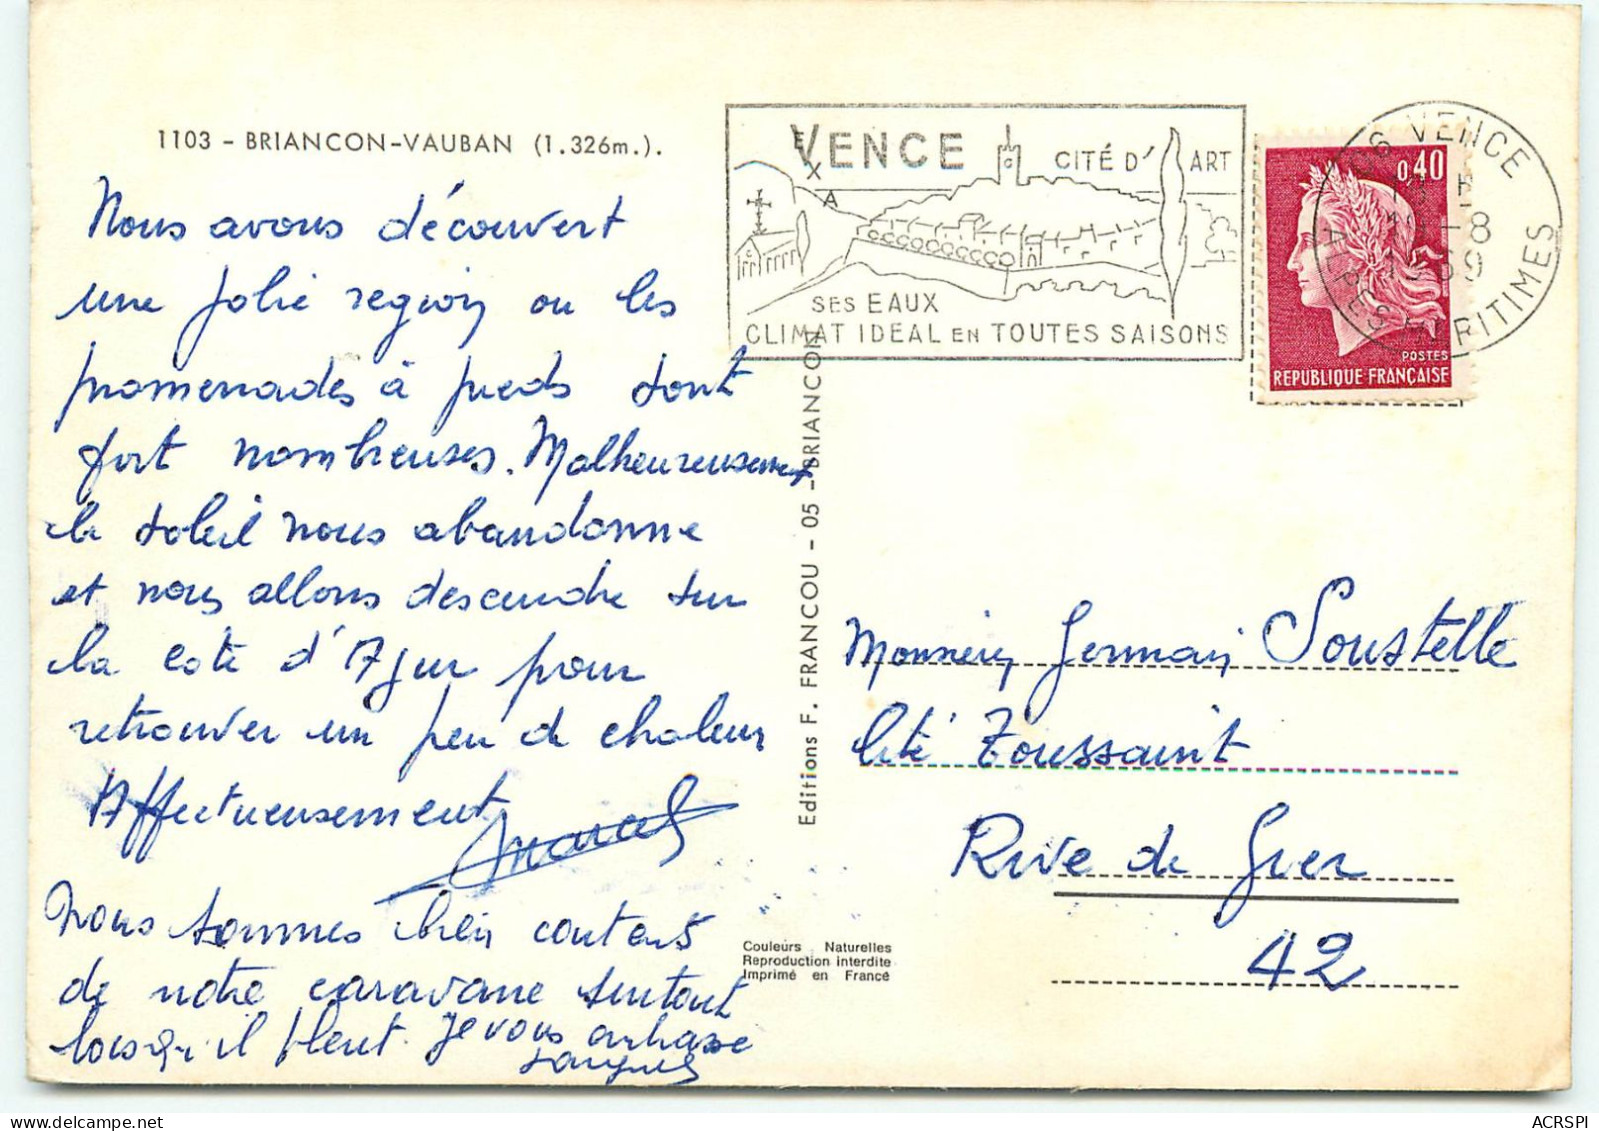 1103 - BRIANCON-VAUBAN (1.326m.).
Nous avons découvert
une jolie region ou les
promenades à pieds sont
fort nombreuses. Malheureusement
le soleil nous abandonne
et nous allons descendre sur
la cote d'Azur pour
retrouver un peu de chaleur
Affectueusement
Marcel
Nous sommes bien contents
de notre caravane surtout
lorsqu'il pleut. Je vous embrasse
Editions F. FRANCOU - 05 - BRIANCON
Couleurs Naturelles
Reproduction interdite
Imprimé en France
VENCE
CITÉ D'ART
SES EAUX
CLIMAT IDEAL EN TOUTES SAISONS
0,40
POSTES
REPUBLIQUE FRANÇAISE
06 VENCE
ALPES MARITIMES
Monsieur Germain Soustelle
Cité Toussaint
Rive de Gier
42
ACRSPI